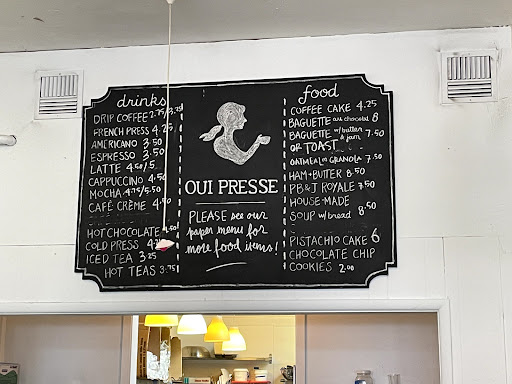 drinks
DRIP COFFEE 2.75/3.25
FRENCH PRESS 4.25
AMERICANO 3.50
ESPRESSO 3.50
LATTE 4.50/5.
CAPPUCCINO 4.50
MOCHA 4.75/5.50
CAFÉ CRÈME 4.50
HOT CHOCOLATE 4.50
COLD PRESS
ICED TEA 3.25
HOT TEAS 3.75
OUI PRESSE
PLEASE see our
paper menu for
more food items!
food
COFFEE CAKE 4.25
BAGUETTE and chocolat 8
BAGUETTE w/ butter & jam 7.50
OR TOAST
OATMEAL OR GRANOLA 7.50
HAM + BUTTER 8.50
PB & J ROYALE 7.50
HOUSE-MADE
SOUP w/ bread 8.50
PISTACHIO CAKE 6
CHOCOLATE CHIP
COOKIES 2.00